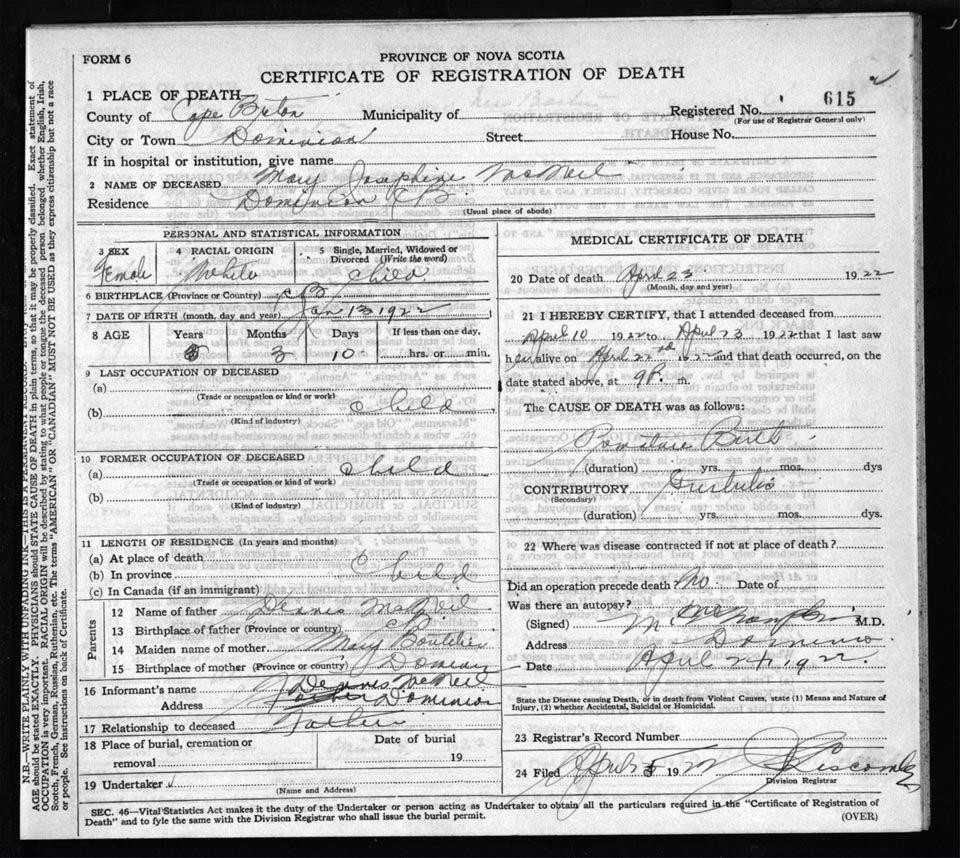 FORM 6
PROVINCE OF NOVA SCOTIA
CERTIFICATE OF REGISTRATION OF DEATH
1 PLACE OF DEATH
County of Cape Breton Municipality of Registered No. 615
(For use of Registrar General only)
City or Town Dominion Street House No.
If in hospital or institution, give name
2 NAME OF DECEASED Mary Josephine McNeil
Residence Dominion CB
(Usual place of abode)
PERSONAL AND STATISTICAL INFORMATION
3 SEX 4 RACIAL ORIGIN 5 Single, Married, Widowed or Divorced (Write the word)
Female White Child
6 BIRTHPLACE (Province or Country) CB
7 DATE OF BIRTH (month, day and year) Jan 13 1922
8 AGE Years Months Days If less than one day,
0 3 10 hrs. or min.
9 LAST OCCUPATION OF DECEASED
(a)
(Trade or occupation or kind or work)
(b) Child
(Kind of industry)
10 FORMER OCCUPATION OF DECEASED
(a) Child
(Trade or occupation or kind of work)
(b)
(Kind of industry)
11 LENGTH OF RESIDENCE (In years and months)
(a) At place of death
(b) In province Child
(c) In Canada (if an immigrant)
Parents
12 Name of father Dennis McNeil
13 Birthplace of father (Province or country) CB
14 Maiden name of mother Mary
15 Birthplace of mother (Province or country) Dominion
16 Informant's name Dennis McNeil
Address Dominion
17 Relationship to deceased Father
18 Place of burial, cremation or removal Date of burial
19
19 Undertaker
(Name and Address)
MEDICAL CERTIFICATE OF DEATH
20 Date of death April 23 1922
(Month, day and year)
21 I HEREBY CERTIFY, that I attended deceased from
April 10 1922 to April 23 1922 that I last saw
her alive on April 22nd 1922 and that death occurred, on the
date stated above, at 9P. m.
The CAUSE OF DEATH was as follows:
Birth
(duration) yrs. mos. dys
CONTRIBUTORY
(Secondary)
(duration) yrs. mos. dys.
22 Where was disease contracted if not at place of death?
Did an operation precede death? No. Date of
Was there an autopsy? no
(Signed) M.D.
Address Dominion
Date April 24 1922.
State the Disease causing Death, or in death from Violent Causes, state (1) Means and Nature of Injury, (2) whether Accidental, Suicidal or Homicidal.
23 Registrar's Record Number
24 Filed 19
Division Registrar
SEC. 46—Vital Statistics Act makes it the duty of the Undertaker or person acting as Undertaker to obtain all the particulars required in the "Certificate of Registration of
Death" and to fyle the same with the Division Registrar who shall issue the burial permit.
(OVER)
N.B.—WRITE PLAINLY WITH UNFADING INK—THIS IS A PERMANENT RECORD.
AGE should be stated EXACTLY. PHYSICIANS should STATE CAUSE OF DEATH in plain terms, so that it may be properly classified. Exact statement of
OCCUPATION is very important. RACIAL ORIGIN will be described by stating to what people or tongue the deceased person belonged whether English, Irish,
Scotch, French, German, Russian, Ruthenian, etc. The terms "AMERICAN" OR "CANADIAN" MUST NOT BE USED as they express citizenship but not a race
or people. See instructions on back of Certificate.